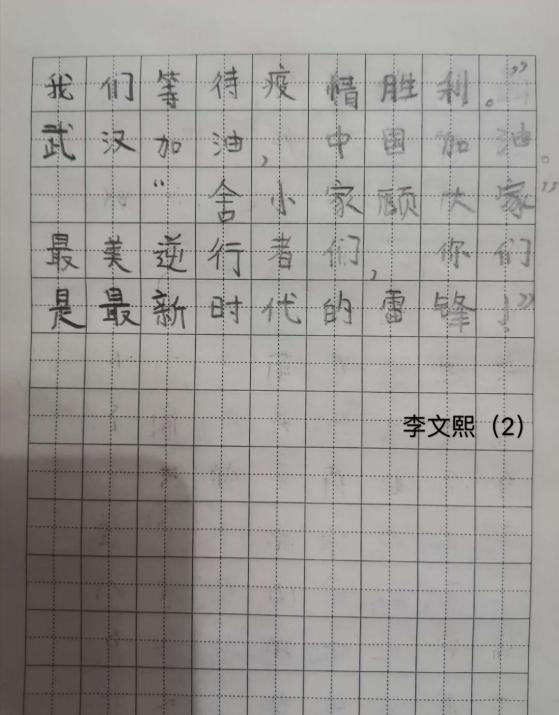 我们等待疫惜胜利。”
武汉加油，中国加油。
“舍小家顾大家”
最美逆行者们，你们
是最新时代的雷锋！”
李文熙（2）